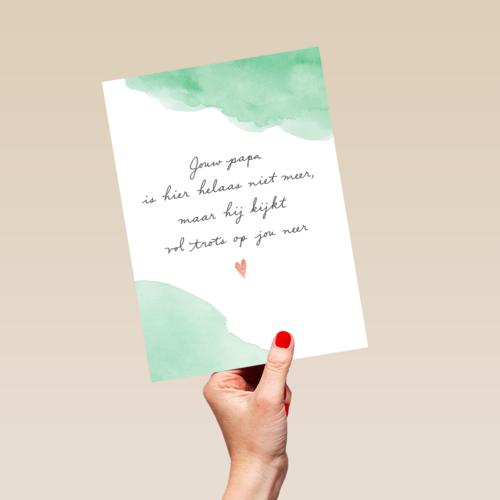 Jouw papa
is hier helaas niet meer,
maar hij kijkt
vol trots op jou neer